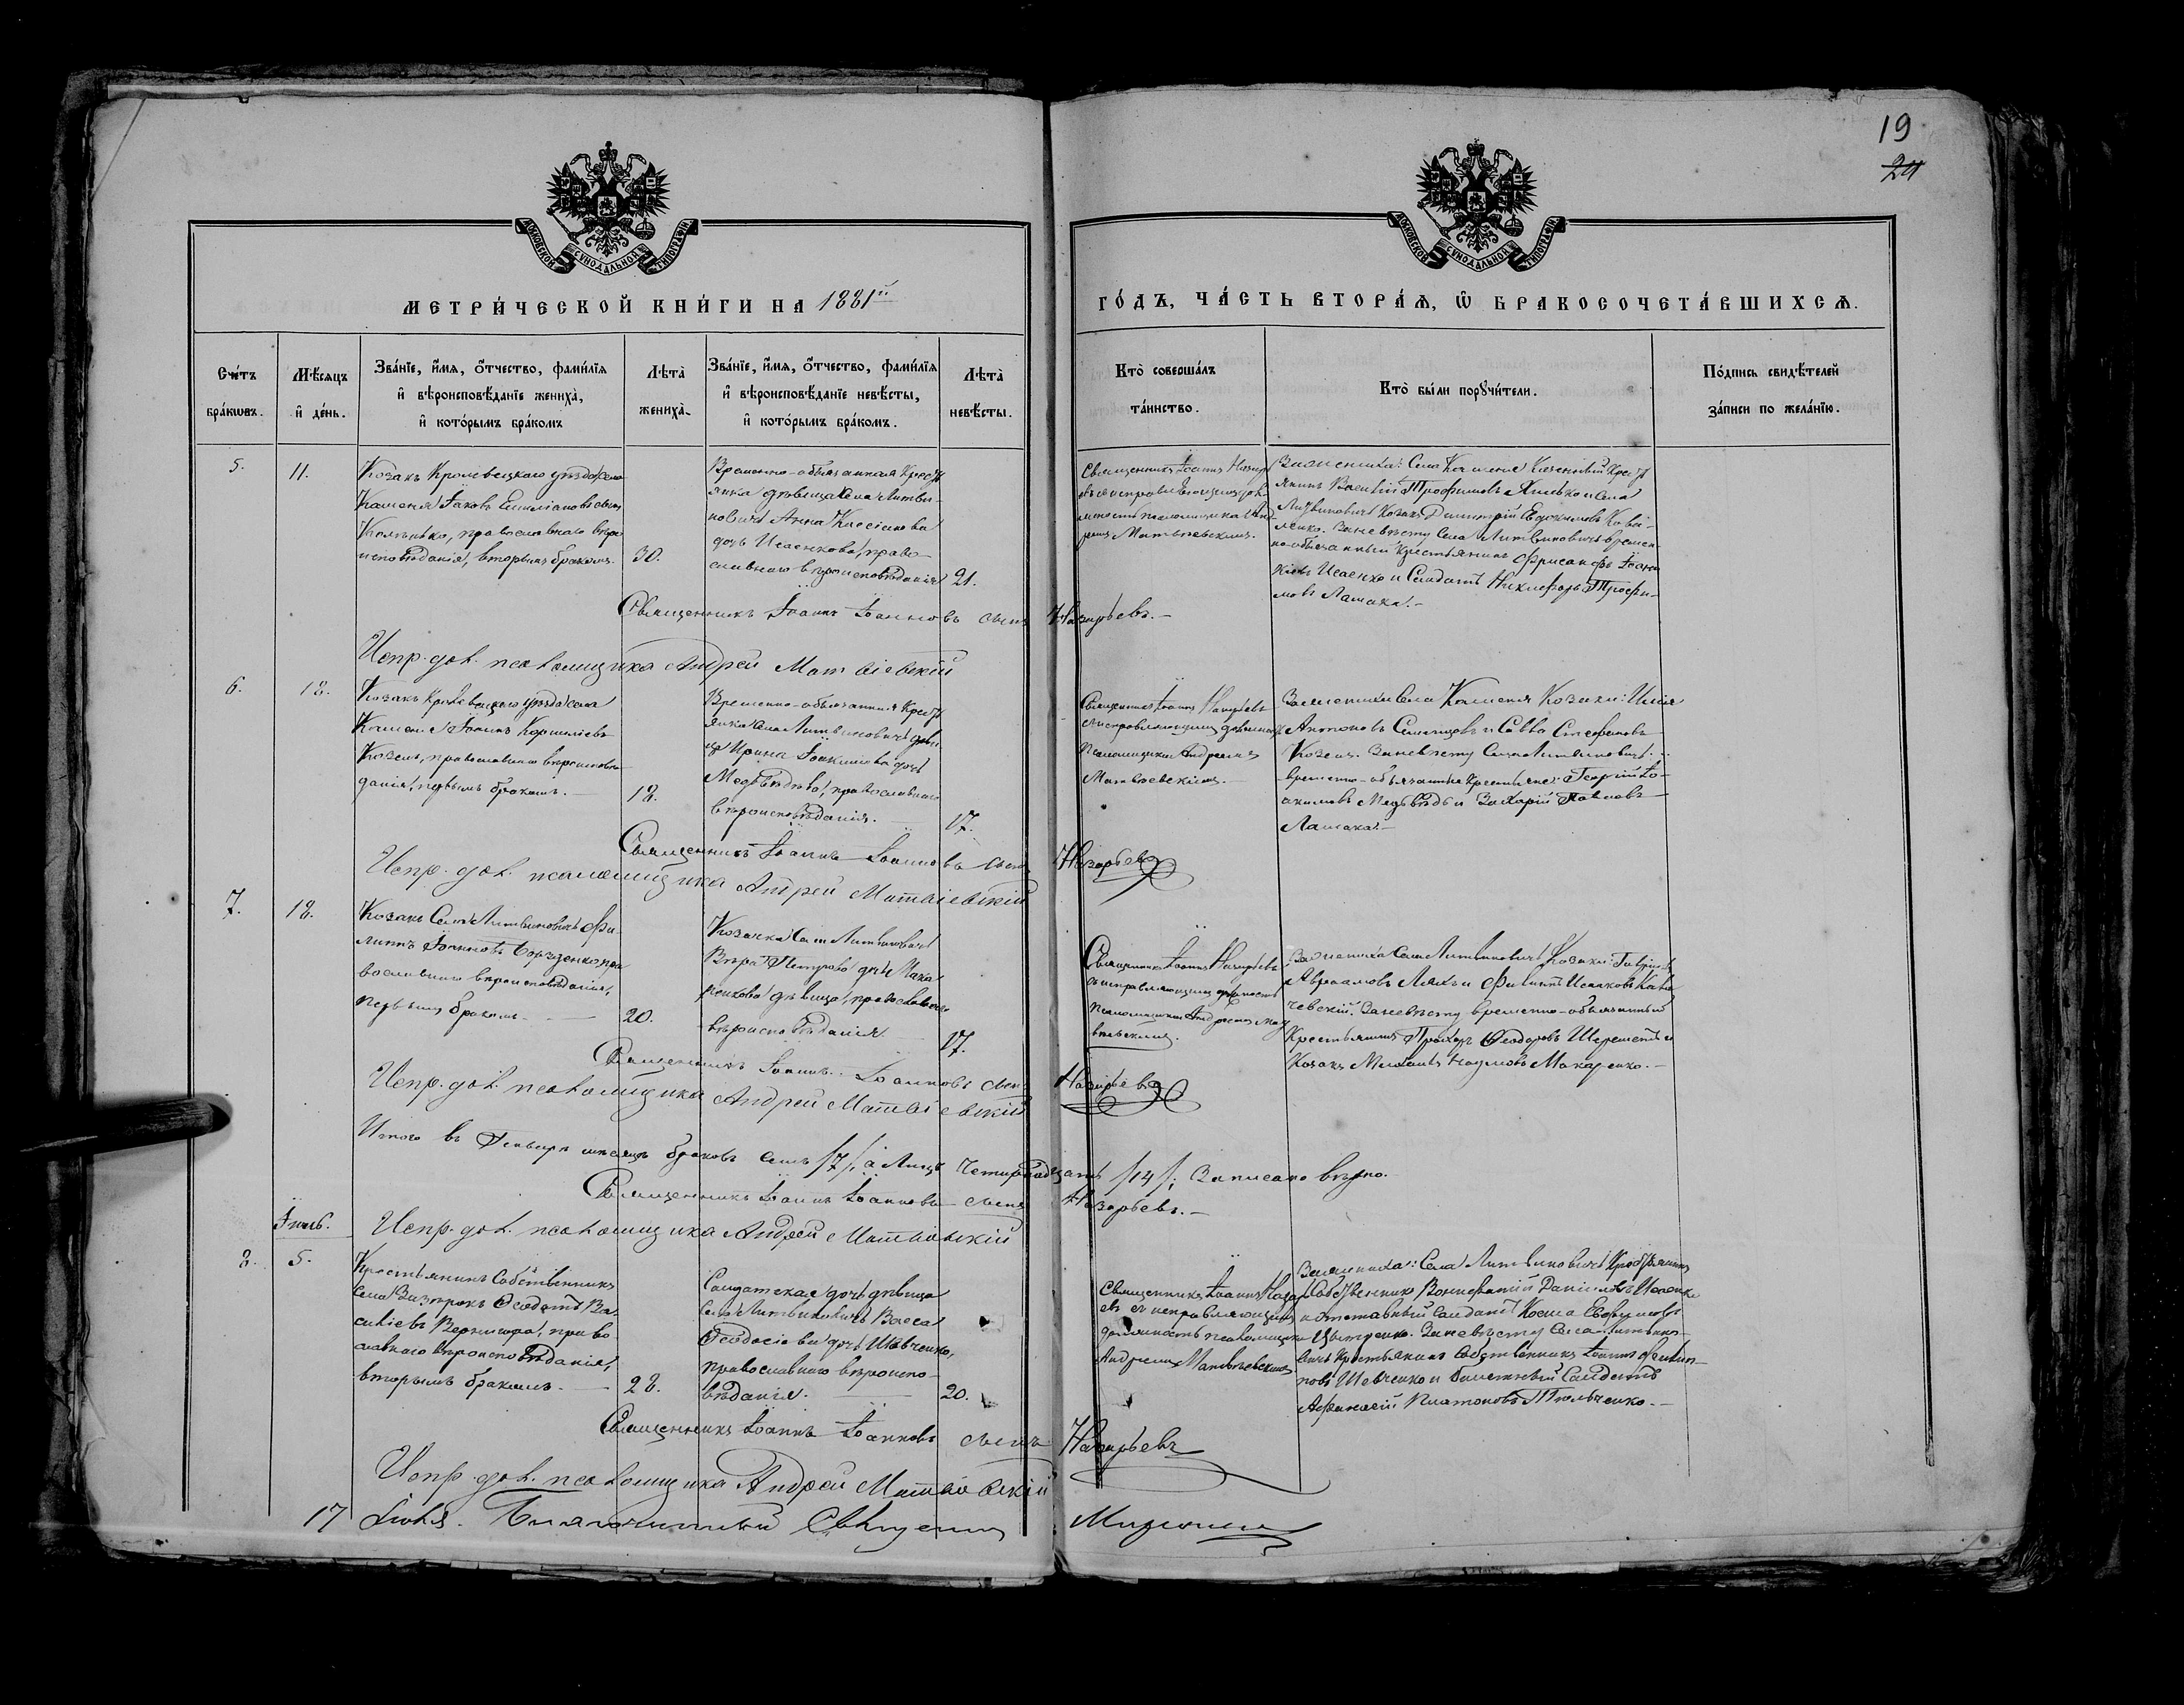 19
24
МОСКОВСКОЙ СУНОДАЛЬНОЙ ТИПОГРАФІИ
МОСКОВСКОЙ СУНОДАЛЬНОЙ ТИПОГРАФІИ
МЕТРИ́ЧЕСКОЙ КНИ́ГИ НА 1881й
ГО́ДЪ, ЧА́СТЬ ВТОРА́Ѧ, Ѿ БРАКОСОЧЕТА́ВШИХСѦ.
Сче́тъ
бра́кѡвъ.
Мѣ́сяцъ
и҆ де́нь.
Зва́нїе, и҆́мѧ, о҆́тчество, фами́лїѧ
и҆ вѣроисповѣ́данїе жениха̀,
и҆ кото́рымъ бра́комъ
Лѣта̀
жениха̀.
Зва́нїе, и҆́мѧ, о҆́тчество, фами́лїѧ
и҆ вѣроисповѣ́данїе невѣ́сты,
и҆ кото́рымъ бра́комъ.
Лѣта̀
невѣ́сты.
Кто̀ соверша́лъ
та́инство.
Кто̀ бы́ли порꙋчи́тели.
По́дпись свидѣ́телей
за́писи по жела́нїю.
5.
11.
Козакъ Кролевецкаго уѣзда села
Каменя Іаковъ Емиліановъ сынъ
православнаго вѣро
исповѣданія, вторымъ бракомъ.
30.
Временно-обязанная крест
янка дѣвица села Литви-
новичъ Анна Кассіанова
дочь Исаенкова, право-
славнаго вѣроисповѣданія
21.
Священникъ Іоаннъ Назарь
евъ съ исправляющимъ дол
жность псаломщика Анд
реемъ Матвѣевскимъ.
По женихѣ: Села Каменя Казенный крест
янинъ Василій Трофимовъ и села
Литвиновичъ Козакъ Димитрій Евдокимовъ Кова-
ленко. По невѣсту Села Литвиновичъ времен-
но-обязанный крестьянинъ Фрисанфъ
Исаенко и Солдатъ Никифоръ Трофи-
мовъ Лашака.-
Священникъ Іоаннъ Іоанновъ сынъ Назарьевъ.-
Испр. дол. псаломщика Андрей Матвіевскій
6.
18.
Козакъ Кролевецкаго уѣзда села
Каменя Іоаннъ Корниліевъ
Козелъ, православнаго вѣроисповѣ
данія, первымъ бракомъ.-
18.
Временно-обязанная крест
янка села Литвиновичъ дѣви
ца Ирина Іоакимова дочь
Медвѣдева, православнаго
вѣроисповѣданія.
17.
Священникъ Іоаннъ Назарьевъ
съ исправляющимъ должность
Псаломщика Андреемъ
Матвѣевскимъ.-
По женихѣ Села Каменя Козаки: Илія
Антоновъ и Савва Стефановъ
Козелъ. По невѣсту Села Литвиновичъ:
временно-обязанные крестьяне: Георгій Іо-
акимовъ Медвѣдь и Захарій Павловъ
Лашака.-
Священникъ Іоаннъ Іоанновъ сынъ Назарьевъ
Испр. дол. псаломщика Андрей Матвіевскій
7.
18.
Козакъ Села Литвиновичъ Фи-
липпъ Іоанновъ пра
вославнаго вѣроисповѣданія,
первымъ бракомъ.
20.
Козачка Села Литвиновичъ
Вѣра Петрова дочь Мака
ренкова дѣвица, православнаго
вѣроисповѣданія.
17.
Священникъ Іоаннъ Назарьевъ
съ исправляющимъ должность
Псаломщика Андреемъ Мат
вѣевскимъ.
По женихѣ Села Литвиновичъ Козаки: Гавріилъ
Авраамовъ Ляхъ и Филиппъ Исааковъ
По невѣсту временно-обязанный
Крестьянинъ Прохоръ Ѳеодоровъ Шереметъ и
Козакъ Михаилъ Наумовъ Макаренко.-
Священникъ Іоаннъ Іоанновъ сынъ Назарьевъ
Испр. дол. псаломщика Андрей Матвіевскій
Итого въ Генварѣ мѣсяцѣ браковъ семь /7/, а лицъ четырнадцать /14/; Записано вѣрно.
Священникъ Іоаннъ Іоанновъ сынъ Назарьевъ.-
Испр. дол. псаломщика Андрей Матвіевскій
8.
5.
Крестьянинъ Собственникъ
Села Ѳеодотъ Ва-
силіевъ Вернигора, право-
славнаго вѣроисповѣданія,
вторымъ бракомъ.-
28.
Солдатская дочь дѣвица
Села Литвиновичъ Васса
Ѳеодосіева дочь Шевченко,
православнаго вѣроиспо-
вѣданія.
20.
Священникъ Іоаннъ Назарь
евъ съ исправляющимъ
должность псаломщика
Андреемъ Матвѣевскимъ
По женихѣ: Села Литвиновичъ Крестьянинъ
Собственникъ Вонифатій Даніиловъ Исаенко
и отставный солдатъ Косма Евфимовъ
По невѣсту Села Литвино-
вичъ Крестьянинъ Собственникъ Іоаннъ Филип-
повъ Шевченко и билетный Солдатъ
Афанасій Платоновъ
Священникъ Іоаннъ Іоанновъ сынъ Назарьевъ
Испр. дол. псаломщика Андрей Матвіевскій
17 Благочинный Священникъ